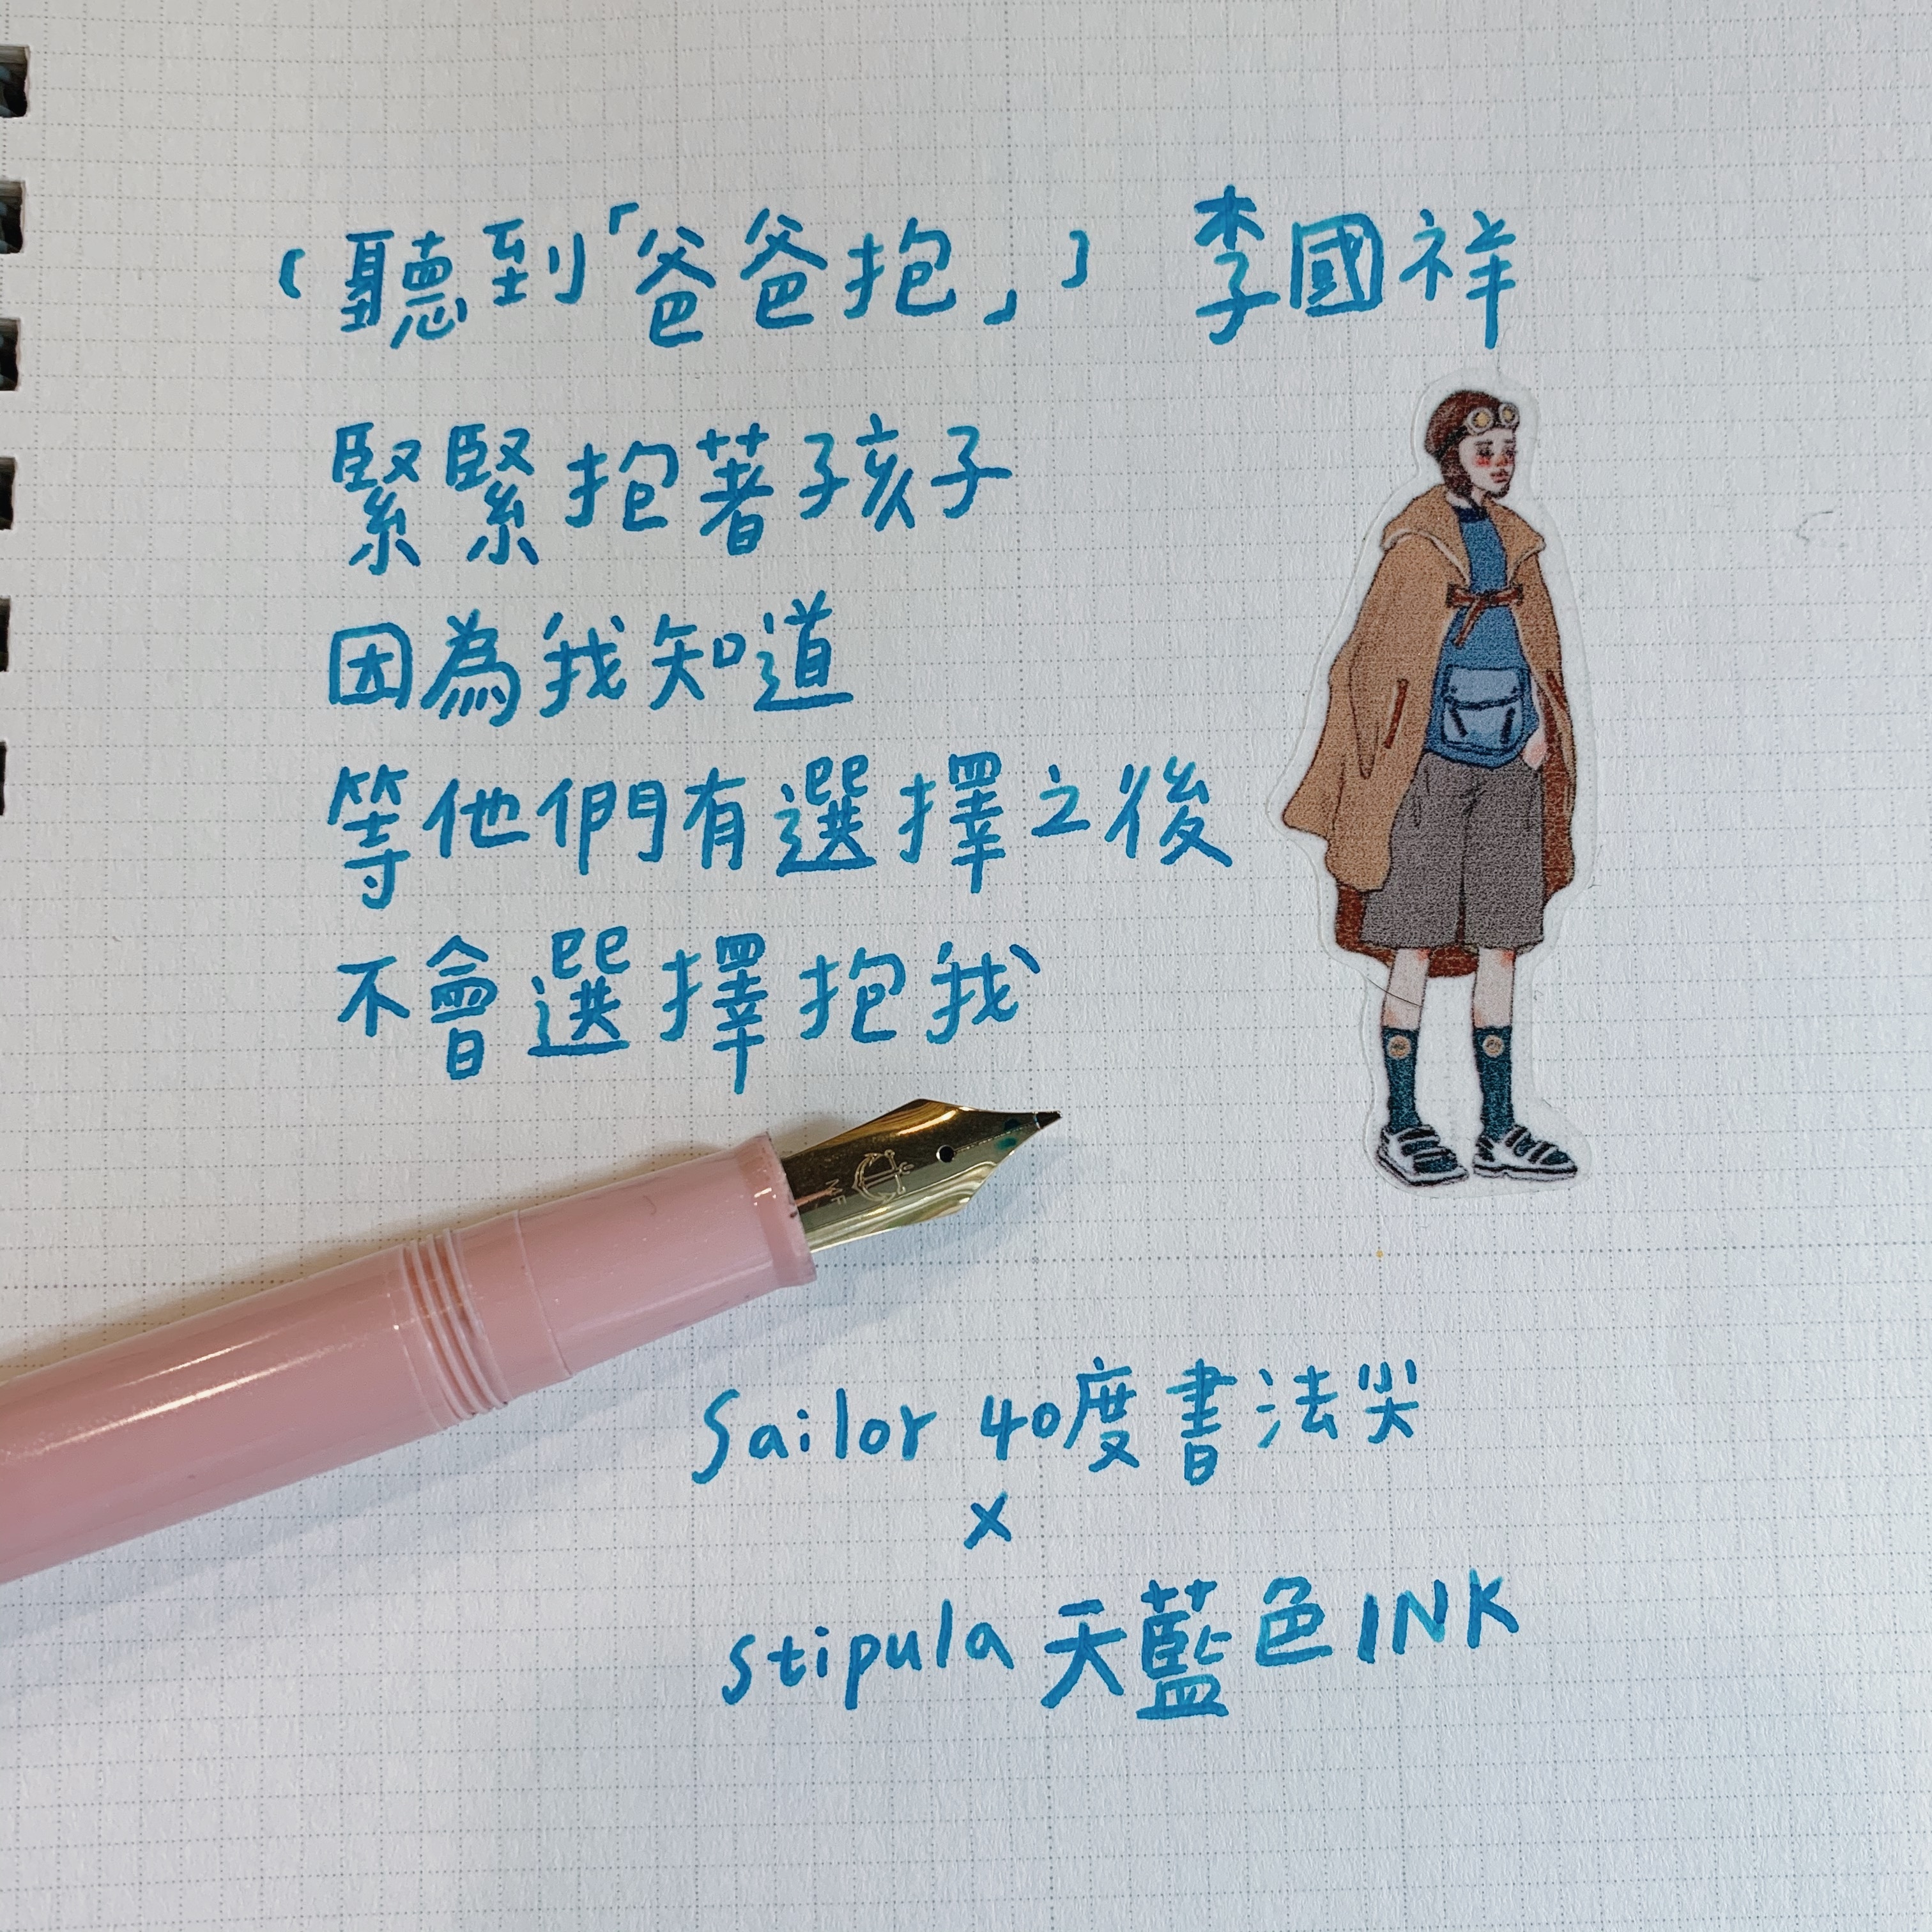 〔聽到「爸爸抱」〕 李國祥
緊緊抱著孩子
因為我知道
等他們有選擇之後
不會選擇抱我
MF
Sailor 40度書法尖
x
stipula 天藍色INK